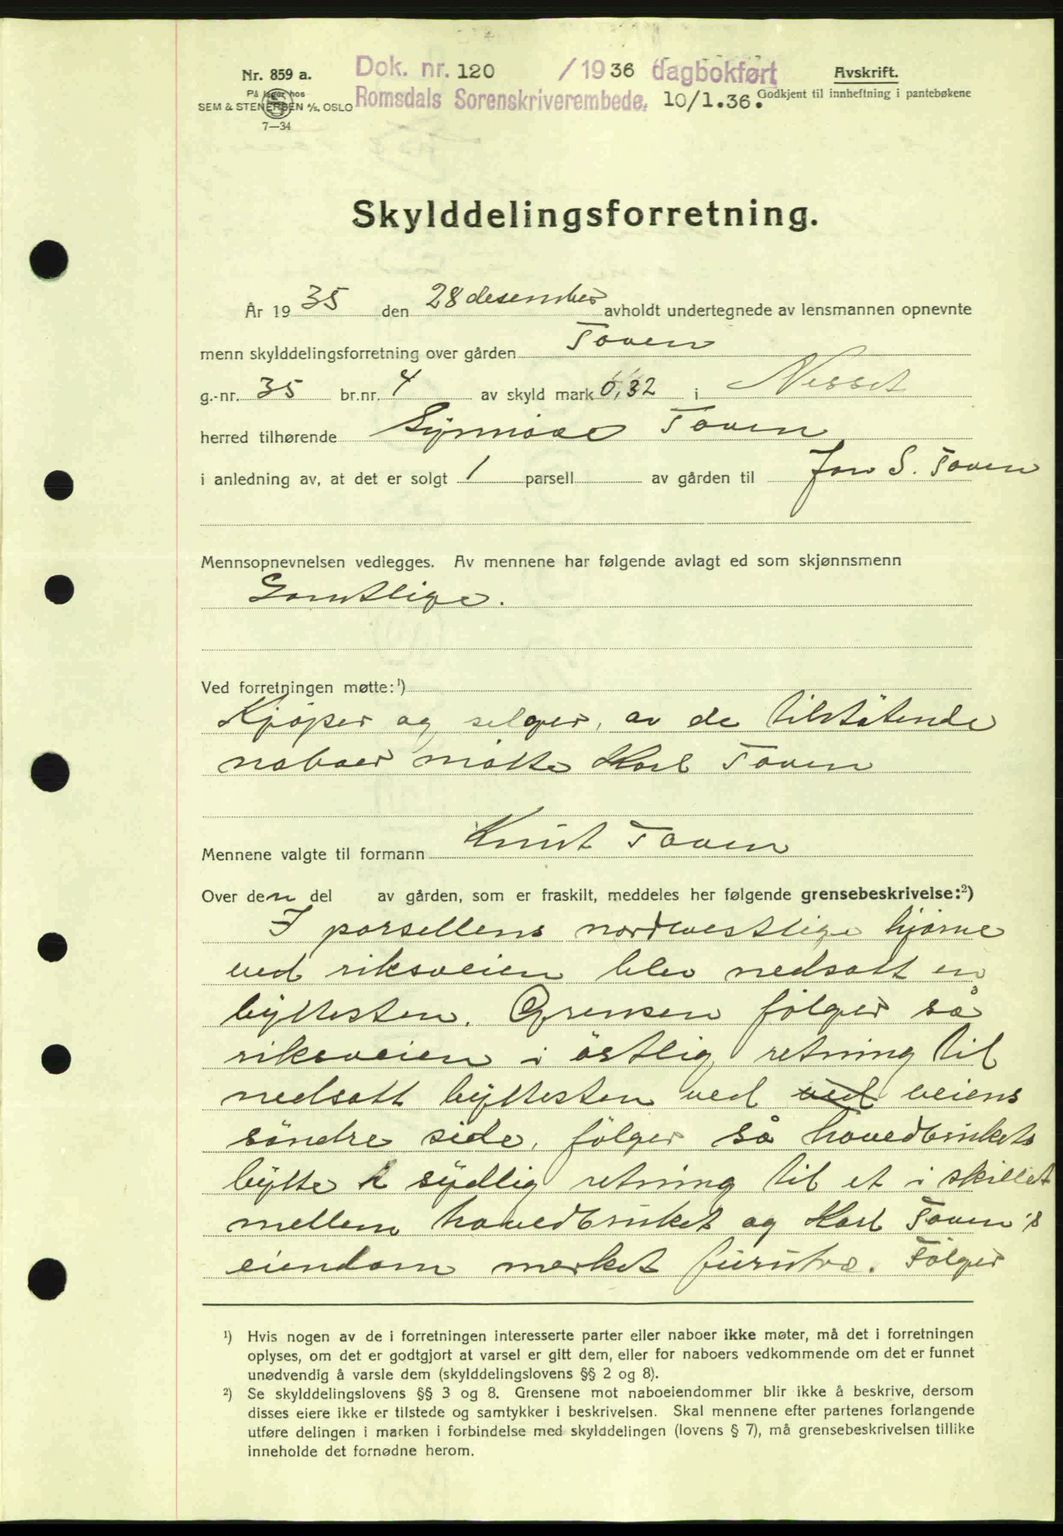 Nr. 859 a.
På lager hos
SEM & STENERSEN A/S, OSLO
7—34
Dok. nr. 120 /1936 dagbokført
Romsdals Sorenskriverembede, 10/1.36.
Avskrift.
Godkjent til innheftning i pantebøkene
Skylddelingsforretning.
År 1935 den 28 desember avholdt undertegnede av lensmannen opnevnte
menn skylddelingsforretning over gården Toven
g.-nr. 35 br.nr. 4 av skyld mark 0,32 i Nesset
herred tilhørende Synnøve Toven
i anledning av, at det er solgt 1 parsell av gården til Jon S. Toven
Mennsopnevnelsen vedlegges. Av mennene har følgende avlagt ed som skjønnsmenn
Samtlige.
Ved forretningen møtte:¹)
Kjøper og selger, av de tilstøtende
naboer møtte Karl Toven
Mennene valgte til formann Knut Toven
Over den del av gården, som er fraskilt, meddeles her følgende grensebeskrivelse:²)
I parsellens nordvestlige hjørne
ved riksveien blev nedsatt en
byttesten. Grensen følger så
riksveien i östlig retning til
nedsatt byttesten ved ved veiens
söndre side, följer så hovedbrukets
bytte i sydlig retning til et i skillet
mellem hovedbruket og Karl Toven's
eiendom merket furutre. Følger
¹) Hvis nogen av de i forretningen interesserte parter eller naboer ikke møter, må det i forretningen
oplyses, om det er godtgjort at varsel er gitt dem, eller for naboers vedkommende om det er funnet
unødvendig å varsle dem (skylddelingslovens §§ 2 og 8).
²) Se skylddelingslovens §§ 3 og 8. Grensene mot naboeiendommer blir ikke å beskrive, dersom
disses eiere ikke er tilstede og samtykker i beskrivelsen. Skal mennene efter partenes forlangende
utføre delingen i marken i forbindelse med skylddelingen (lovens § 7), må grensebeskrivelsen tillike
inneholde det fornødne herom.